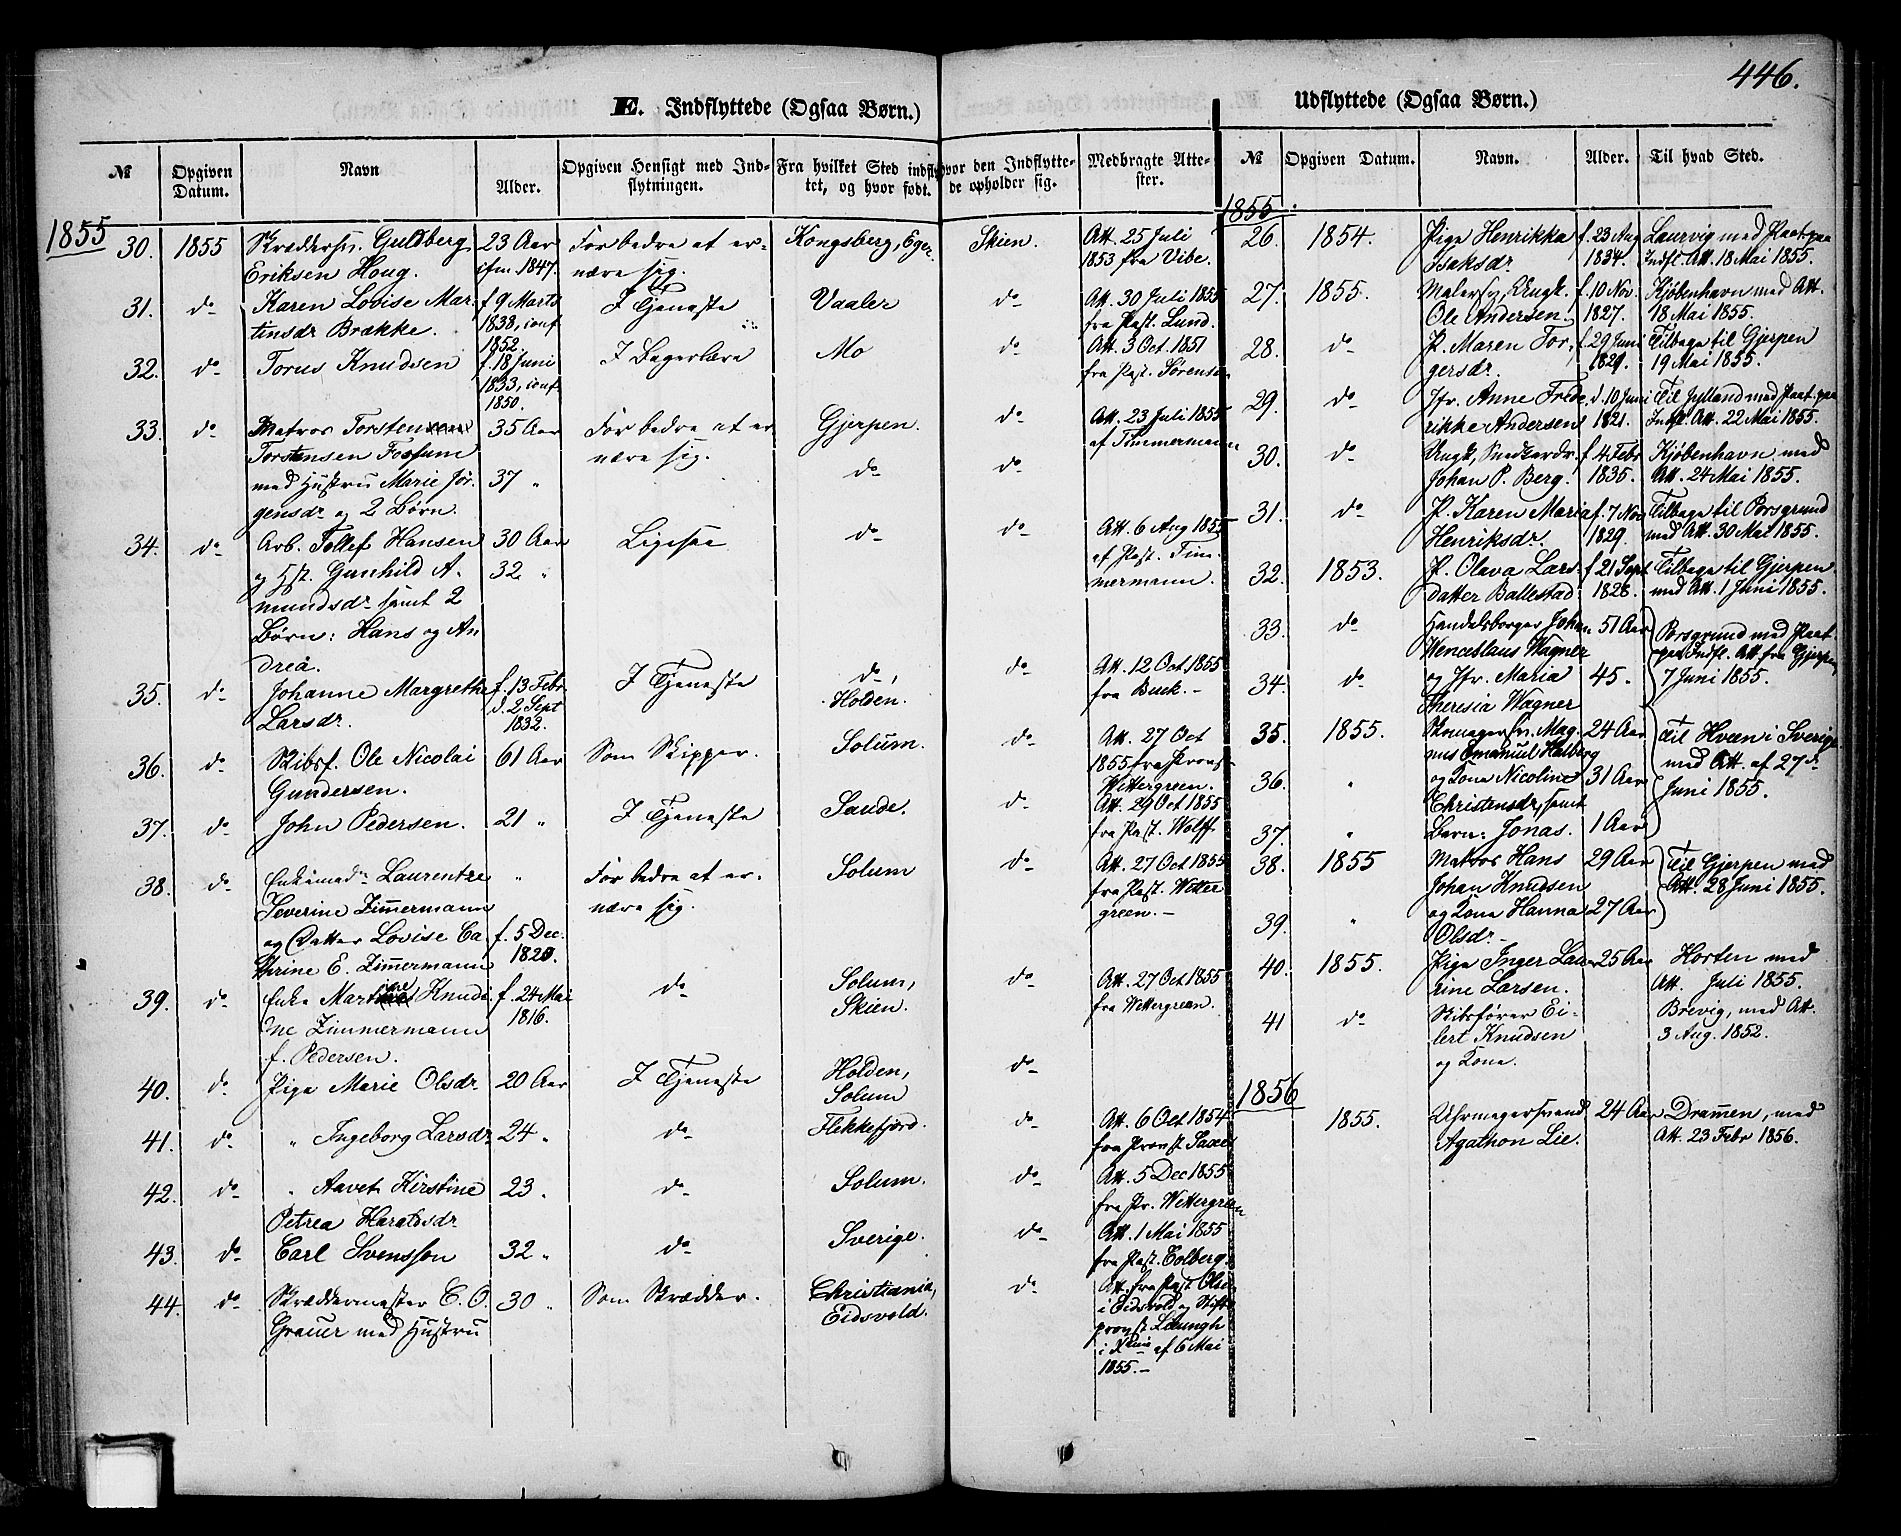 446.
E. Indflyttede (Ogsaa Børn.)
Udflyttede (Ogsaa Børn.)
№ Opgiven Datum. Navn Alder. Opgiven Hensigt med Indflytningen. Fra hvilket Sted indflyttet, og hvor født. hvor den Indflyttede opholder sig. Medbragte Attester.
1855
30. 1855 Skræddersv. Guldberg 23 Aar For bedre at er- Kongsberg, Eger. Skien. Att. 25 Juli
Eriksen Houg. ifm. 1847. nære sig. 1853 fra Vibe.
31. do Karen Lovise Mar- f. 9 Marts I Tjeneste Vaaler do Att. 30 Juli 1855
tinsdr Brække. 1838, conf. fra Past. Lund.
1852.
32. do Torus Knudsen f. 18 Juni I Mo do Att. 3 Oct. 1851
1833, conf. fra Past. Sørensen
1850.
33. do Matros Torsten 35 Aar For bedre at er Gjerpen. do Att. 23 Juli 1855
Torstensen Fossum nære sig. af Timmermann
med Hustru Marie Jør- 37 " do do
gensdr og 2 Børn.
34. do Arb. Tollef Hansen 30 Aar Ligesaa do do Att. 6 Aug 1855
og Hst. Gunhild A- 32 " af Past. Tim-
mundsdr samt 2 mermann.
Børn: Hans og An
drea.
35. do Johanne Margrethe f. 13 Febr I Tjeneste do, do Att. 12 Oct. 1855
Larsdr. d. 2 Sept Holden. fra Buck. –
1832.
36. do Skibsf. Ole Nicolai 61 Aar Som Skipper. Solum. do Att. 27 Oct
Gundersen. 1855 fra Provst
Wettergreen.
37. do John Pedersen. 21 " I Tjeneste Saude. do Att. 29 Oct 1855
fra Past. Wolff.
38. do Enkemad. Laurentze " For bedre at er- Solum do Att. 27 Oct 1855
Severine Zimmermann nære sig. fra Past. Wetter
og Datter Lovise Ca f. 5 Dec. green. –
thrine E. Zimmermann 1820.
39. do Enke Martine Knudi f. 24 Mai do Solum, do Att. 27 Oct 1855
ne Zimmermann 1816. Skien. fra Wettergreen.
f. Pedersen.
40. do Pige Marie Olsdr 20 Aar I Tjeneste Holden, do
Solum
41. do " Ingeborg Larsdr 24 " do Flekkefjord. do Att. 6 Oct 1854
fra Provst
42. do " Aavet Kirstine 23 " do Solum. do Att. 5 Dec 1855
Petrea Haraldsdr fra Pr. Wettergreen
43. do Carl Svensson 32 " do Sverige. do Att. 1 Mai 1855
fra Past. Colberg.
44. do Skræddermester C. O. 30 " Som Skrædder. Christiania, do Att. fra Past Olsen
Grauer med Hustru Eidsvold. i Eidsvold og Stifts
provst
i Xania af 6 Mai
1855. –
№ Opgiven Datum. Navn. Alder. Til hvad Sted.
1855.
26. 1854. Pige Henrikka f. 23 Aug Laurvig med Paat. paa
Isaksdr. 1834. Indfl. Att. 18 Mai 1855.
27. 1855. Malersv. Ungk. f. 10 Nov. Kjøbenhavn med Att.
Ole Andersen. 1827. 18 Mai 1855.
28. do P. Maren Tor- f. 29 Juni Tilbage til Gjerpen
gersdr. 1829. 19 Mai 1855.
29. do Jfr. Anne Frede d. 10 Juni Til Jylland med Paat. paa
rikke Andersen 1821. Indfl. Att. 22 Mai 1855.
30. do Ungk. Snedkerdr. f. 4 Febr Kjøbenhavn med
Johan P. Berg. 1835. Att. 24 Mai 1855.
31. do P. Karen Maria f. 7 Nov Tilbage til Porsgrund
Henriksdr. 1829. med Att. 30 Mai 1855.
32. 1853. P. Olava Lars- f. 21 Sept Tilbage til Gjerpen
datter Ballestad 1828. med Att. 1 Juni 1855.
33. do Handelsborger Johan 51 Aar Porsgrund med Paat.
Wenceblaus Wagner paa Indfl. Att. fra Gjerpen
34. do og Jfr. Maria 45. 7 Juni 1855.
Theresia Wagner
35. 1855. Skomagersv. Mag- 24 Aar Til Hveen i Sverige
nus Emanuel Halberg med Att. af 27de
36. " og Kone Nicoline 31 Aar Juni 1855.
Christensdr, samt
37. " Barn: Jonas. 1 Aar
38. 1855 Matros Hans 29 Aar Til Gjerpen med
Johan Knudsen Att. 28 Juni 1855.
39. " og Kone Hanna 27 Aar
Olsdr –
40. 1855. Pige Inger Lau- 25 Aar Horten med
rine Larsen. Att. Juli 1855.
41 do Skibsfører Ei- Brevig, med Att.
lert Knudsen 3 Aug. 1852.
og Kone.
1856
1855. Uhrmagersvend 24 Aar Drammen, med
Agathon Lie. Att. 23 Febr 1856.